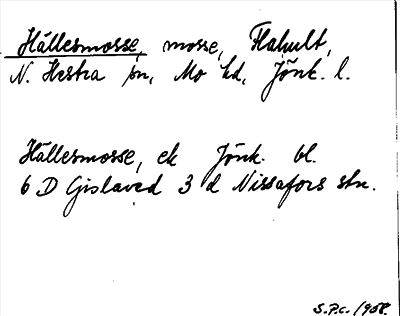 Hällesmosse, mosse, Flahult,
N. Hestra sn, Mo hd, Jönk. l.
Hällesmosse, ek Jönk. bl.
6 D Gislaved 3 d Nissafors stn.
S.P.C. 1958.